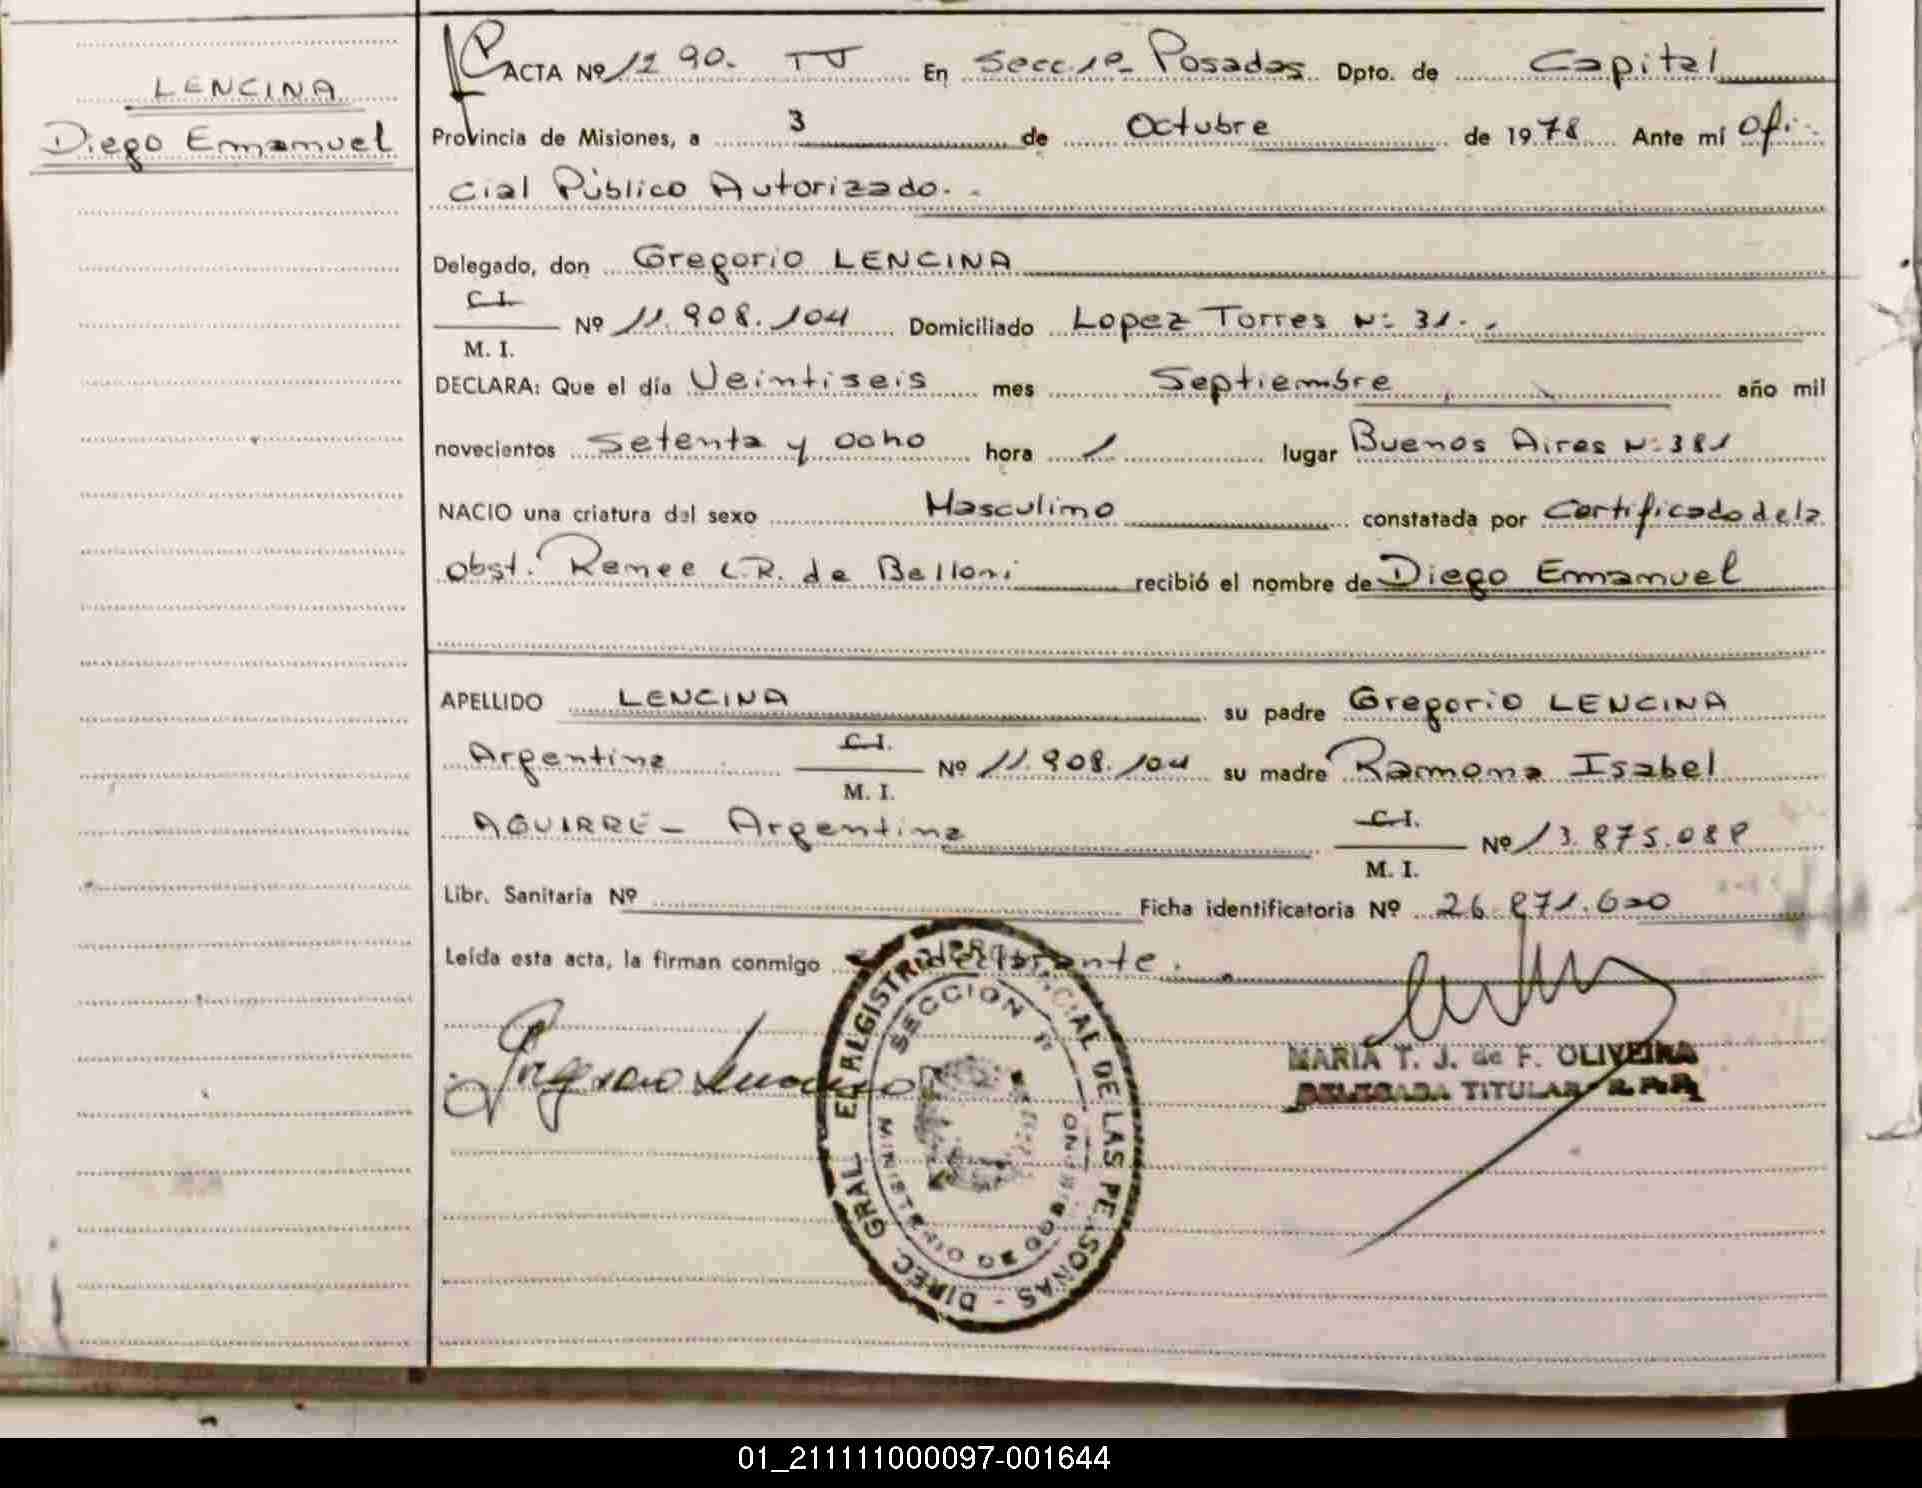 LENCINA
Diego Emmanuel
ACTA Nº 1290. TJ En Secc. 1ª Posadas Dpto. de Capital
Provincia de Misiones, a 3 de Octubre de 1978 Ante mí Ofi-
cial Público Autorizado.-
Delegado, don Gregorio LENCINA
C.I.
Nº 11.908.104 Domiciliado Lopez Torres Nº 31.-
M. I.
DECLARA: Que el día Veintiseis mes Septiembre año mil
novecientos Setenta y ocho hora 1 lugar Buenos Aires Nº 381
NACIO una criatura del sexo Masculino constatada por Certificado de la
obst. Renee L.R. de Belloni recibió el nombre de Diego Emmanuel
APELLIDO LENCINA su padre Gregorio LENCINA
Argentina C.I. Nº 11.908.104 su madre Ramona Isabel
M. I.
AGUIRRE - Argentina C.I. Nº 13.875.088
M. I.
Libr. Sanitaria Nº Ficha identificatoria Nº 26.871.600
Leída esta acta, la firman conmigo declarante.
DIREC. GRAL. EL REGISTRO PROVINCIAL DE LAS PERSONAS -
SECCION 1ª
MINISTERIO DE GOBIERNO
Gregorio Lencina
MARIA T. J. de F. OLIVEIRA
DELEGADA TITULAR R.P.P.
01_211111000097-001644